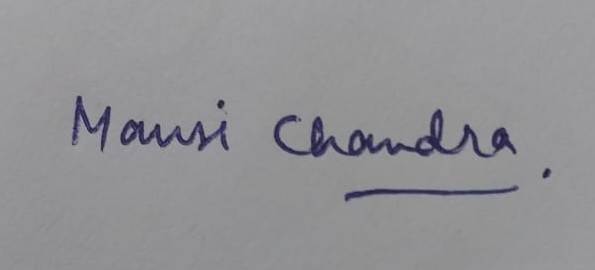 Mansi Chandra.